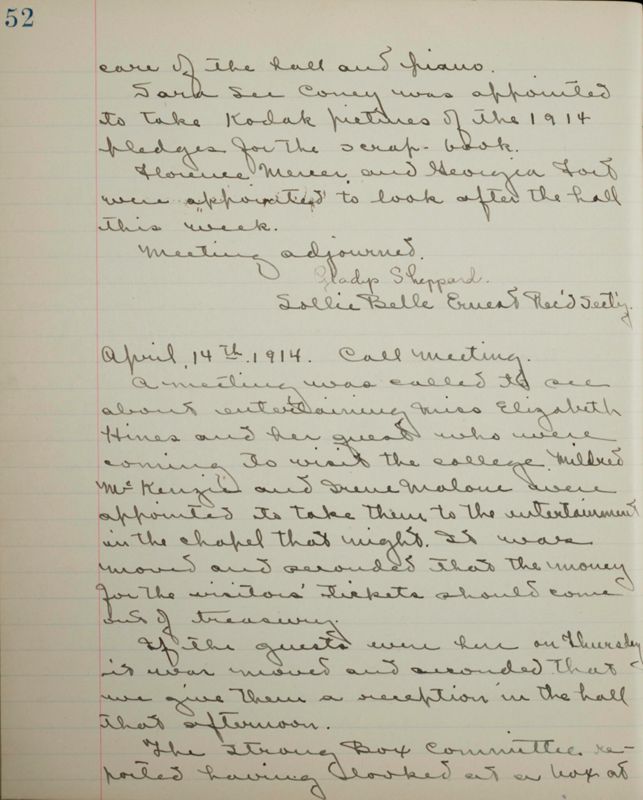 52
care of the hall and piano.
Sara Lee Coney was appointed
to take Kodak pictures of the 1914
pledges for the scrap-book.
Florence Mercer and Georgia Fort
were appointed to look after the hall
this week.
Meeting adjourned.
Gladys Sheppard.
Sollie Belle Ernest Rec'd Sect'y.
April 14th 1914. Call Meeting.
A meeting was called to see
about entertaining Miss Elizabeth
Hines and her guest who were
coming to visit the college. Mildred
McKenzie and Irene Malone were
appointed to take them to the entertainment
in the chapel that night. It was
moved and seconded that the money
for the visitors' tickets should come
out of treasury.
If the guests were here on Thursday
it was moved and seconded that
we give them a reception in the hall
that afternoon.
The Strong Box Committee re-
ported having looked at a box at